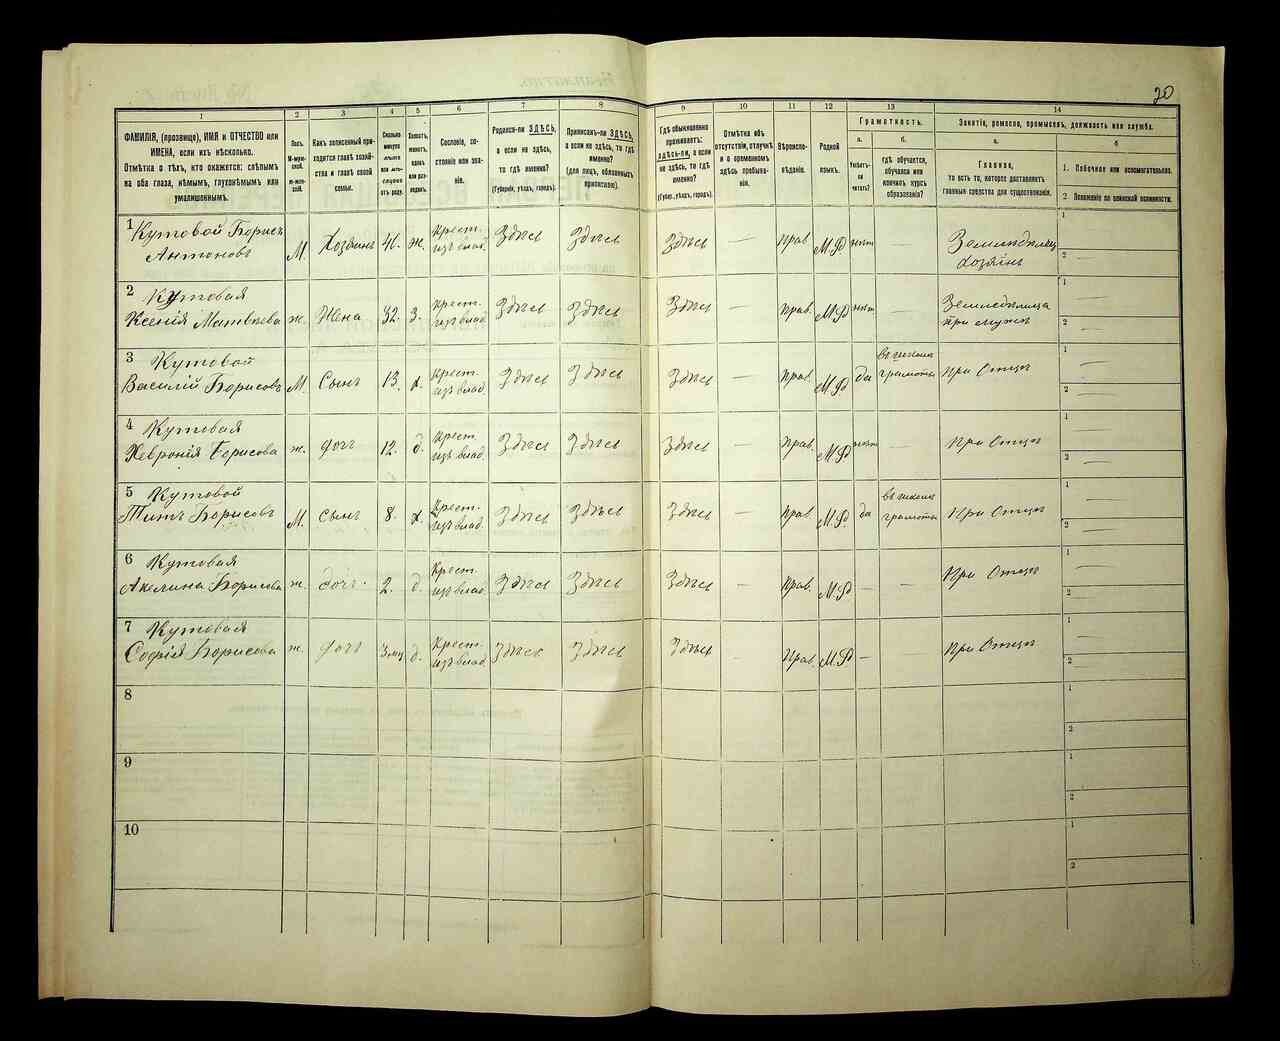 20
1
2
3
4
5
6
7
8
9
10
11
12
13
14
ФАМИЛІЯ, (прозвище), ИМЯ и ОТЧЕСТВО или
ИМЕНА, если ихъ нѣсколько.
Отмѣтка о тѣхъ, кто окажется: слѣпымъ
на оба глаза, нѣмымъ, глухонѣмымъ или
умалишеннымъ.
Полъ.
М-муж-
ской.
ж-жен-
скій.
Какъ записанный при-
ходится главѣ хозяй-
ства и главѣ своей
семьи.
Сколько
минуло
лѣтъ
или мѣс-
отъ роду.
Холостъ,
женатъ,
вдовъ
или раз-
веденъ.
Сословіе, со-
стояніе или зва-
ніе.
Родился-ли ЗДѢСЬ,
а если не здѣсь,
то гдѣ именно?
(Губернія, уѣздъ, городъ).
Приписанъ-ли ЗДѢСЬ,
а если не здѣсь, то гдѣ
именно?
(для лицъ, обязанныхъ
припискою).
Гдѣ обыкновенно
проживаетъ:
здѣсь-ли, а если
не здѣсь, то гдѣ
именно?
(Губер., уѣздъ, городъ).
Отмѣтка объ
отсутствіи, отлучкѣ
и о временномъ
здѣсь пребыва-
ніи.
Вѣроиспо-
вѣданіе.
Родной
языкъ.
Грамотность.
а.
Умѣетъ-
ли
читать?
б.
гдѣ обучается,
обучался или
кончилъ курсъ
образованія?
Занятіе, ремесло, промыселъ, должность или служба.
а.
Главное,
то есть то, которое доставляетъ
главныя средства для существованія.
б
1. Побочное или вспомогательное.
2 Положеніе по воинской повинности.
1 Кутовой Борисъ
Антоновъ
М. Хозяинъ 41. ж. Крест. изъ влад. Здѣсь Здѣсь Здѣсь — Прав. М.Р нѣт — Земледѣлецъ
хозяинъ
1
2
2 Кутовая
Ксенія Матвѣева ж. Жена 32. З. Крест. изъ влад. Здѣсь Здѣсь Здѣсь — Прав. М.Р нѣт — Земледѣлица
при мужѣ
1
2
3 Кутовой
Василій Борисовъ М. Сынъ 13. х. Крест. изъ влад. Здѣсь Здѣсь Здѣсь — Прав. М.Р да въ школѣ
грамоты При Отцѣ
1
2
4 Кутовая
Хевронія Борисова ж. дочь 12. д. Крест. изъ влад. Здѣсь Здѣсь Здѣсь — Прав. М.Р нѣт — При Отцѣ
1
2
5 Кутовой
Титъ Борисовъ М. Сынъ 8. х. Крест. изъ влад. Здѣсь Здѣсь Здѣсь — Прав М.Р да въ школѣ
грамоты При Отцѣ
1
2
6 Кутовая
Акелина Борисова ж. дочь 2. д. Крест. изъ влад. Здѣсь Здѣсь Здѣсь — Прав. М.Р — — При Отцѣ
1
2
7 Кутовая
Софія Борисова ж. дочь 3 мц д. Крест. изъ влад. Здѣсь Здѣсь Здѣсь — Прав. М.Р — При Отцѣ
1
2
8
1
2
9
2
10
1
2